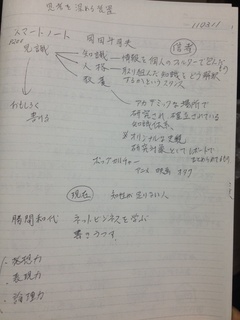 思考を深める装置
110211
スマートノート 岡田斗司夫
見識
知識 — 情報を個人のフィルターで
人格 — 取り組んだ知識をどう解釈
するかというスタンス
教養
アカデミックな場所で
研究され 確立されている
知識体系
オリジナルな
研究対象として レポートで
おもしろく
書ける
ポップカルチャー
アニメ 映画 オタク
現在 知性が足りない人
勝間和代 ネットビジネスを学ぶ
裏をうつす
・発想力
・表現力
・論理力